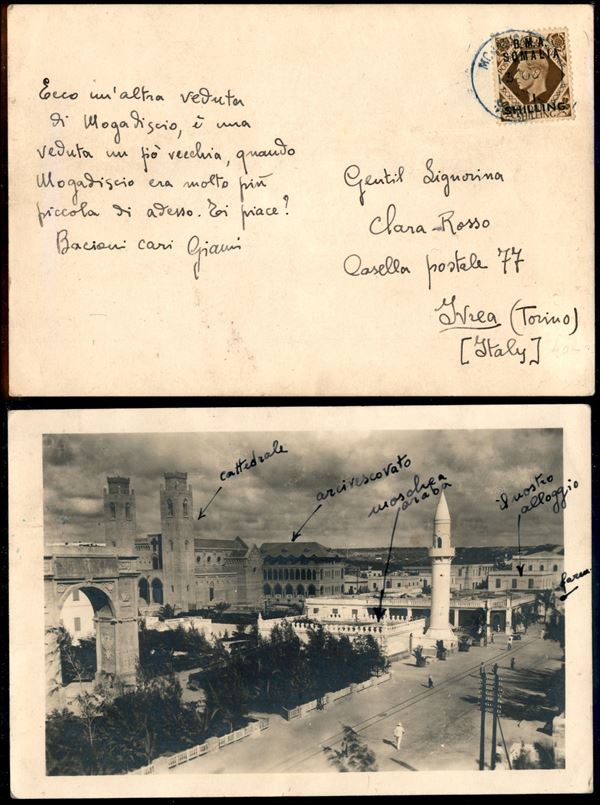 B.M.A.
SOMALIA
1
SHILLING
SHILLING
Ecco un'altra veduta
di Mogadiscio, è una
veduta un pò vecchia, quando
Mogadiscio era molto più
piccola di adesso. Ti piace?
Bacioni cari Gianni
Gentil Signorina
Clara Rosso
Casella postale 77
Ivrea (Torino)
[Italy]
cattedrale
arcivescovato
moschea
araba
il nostro
alloggio